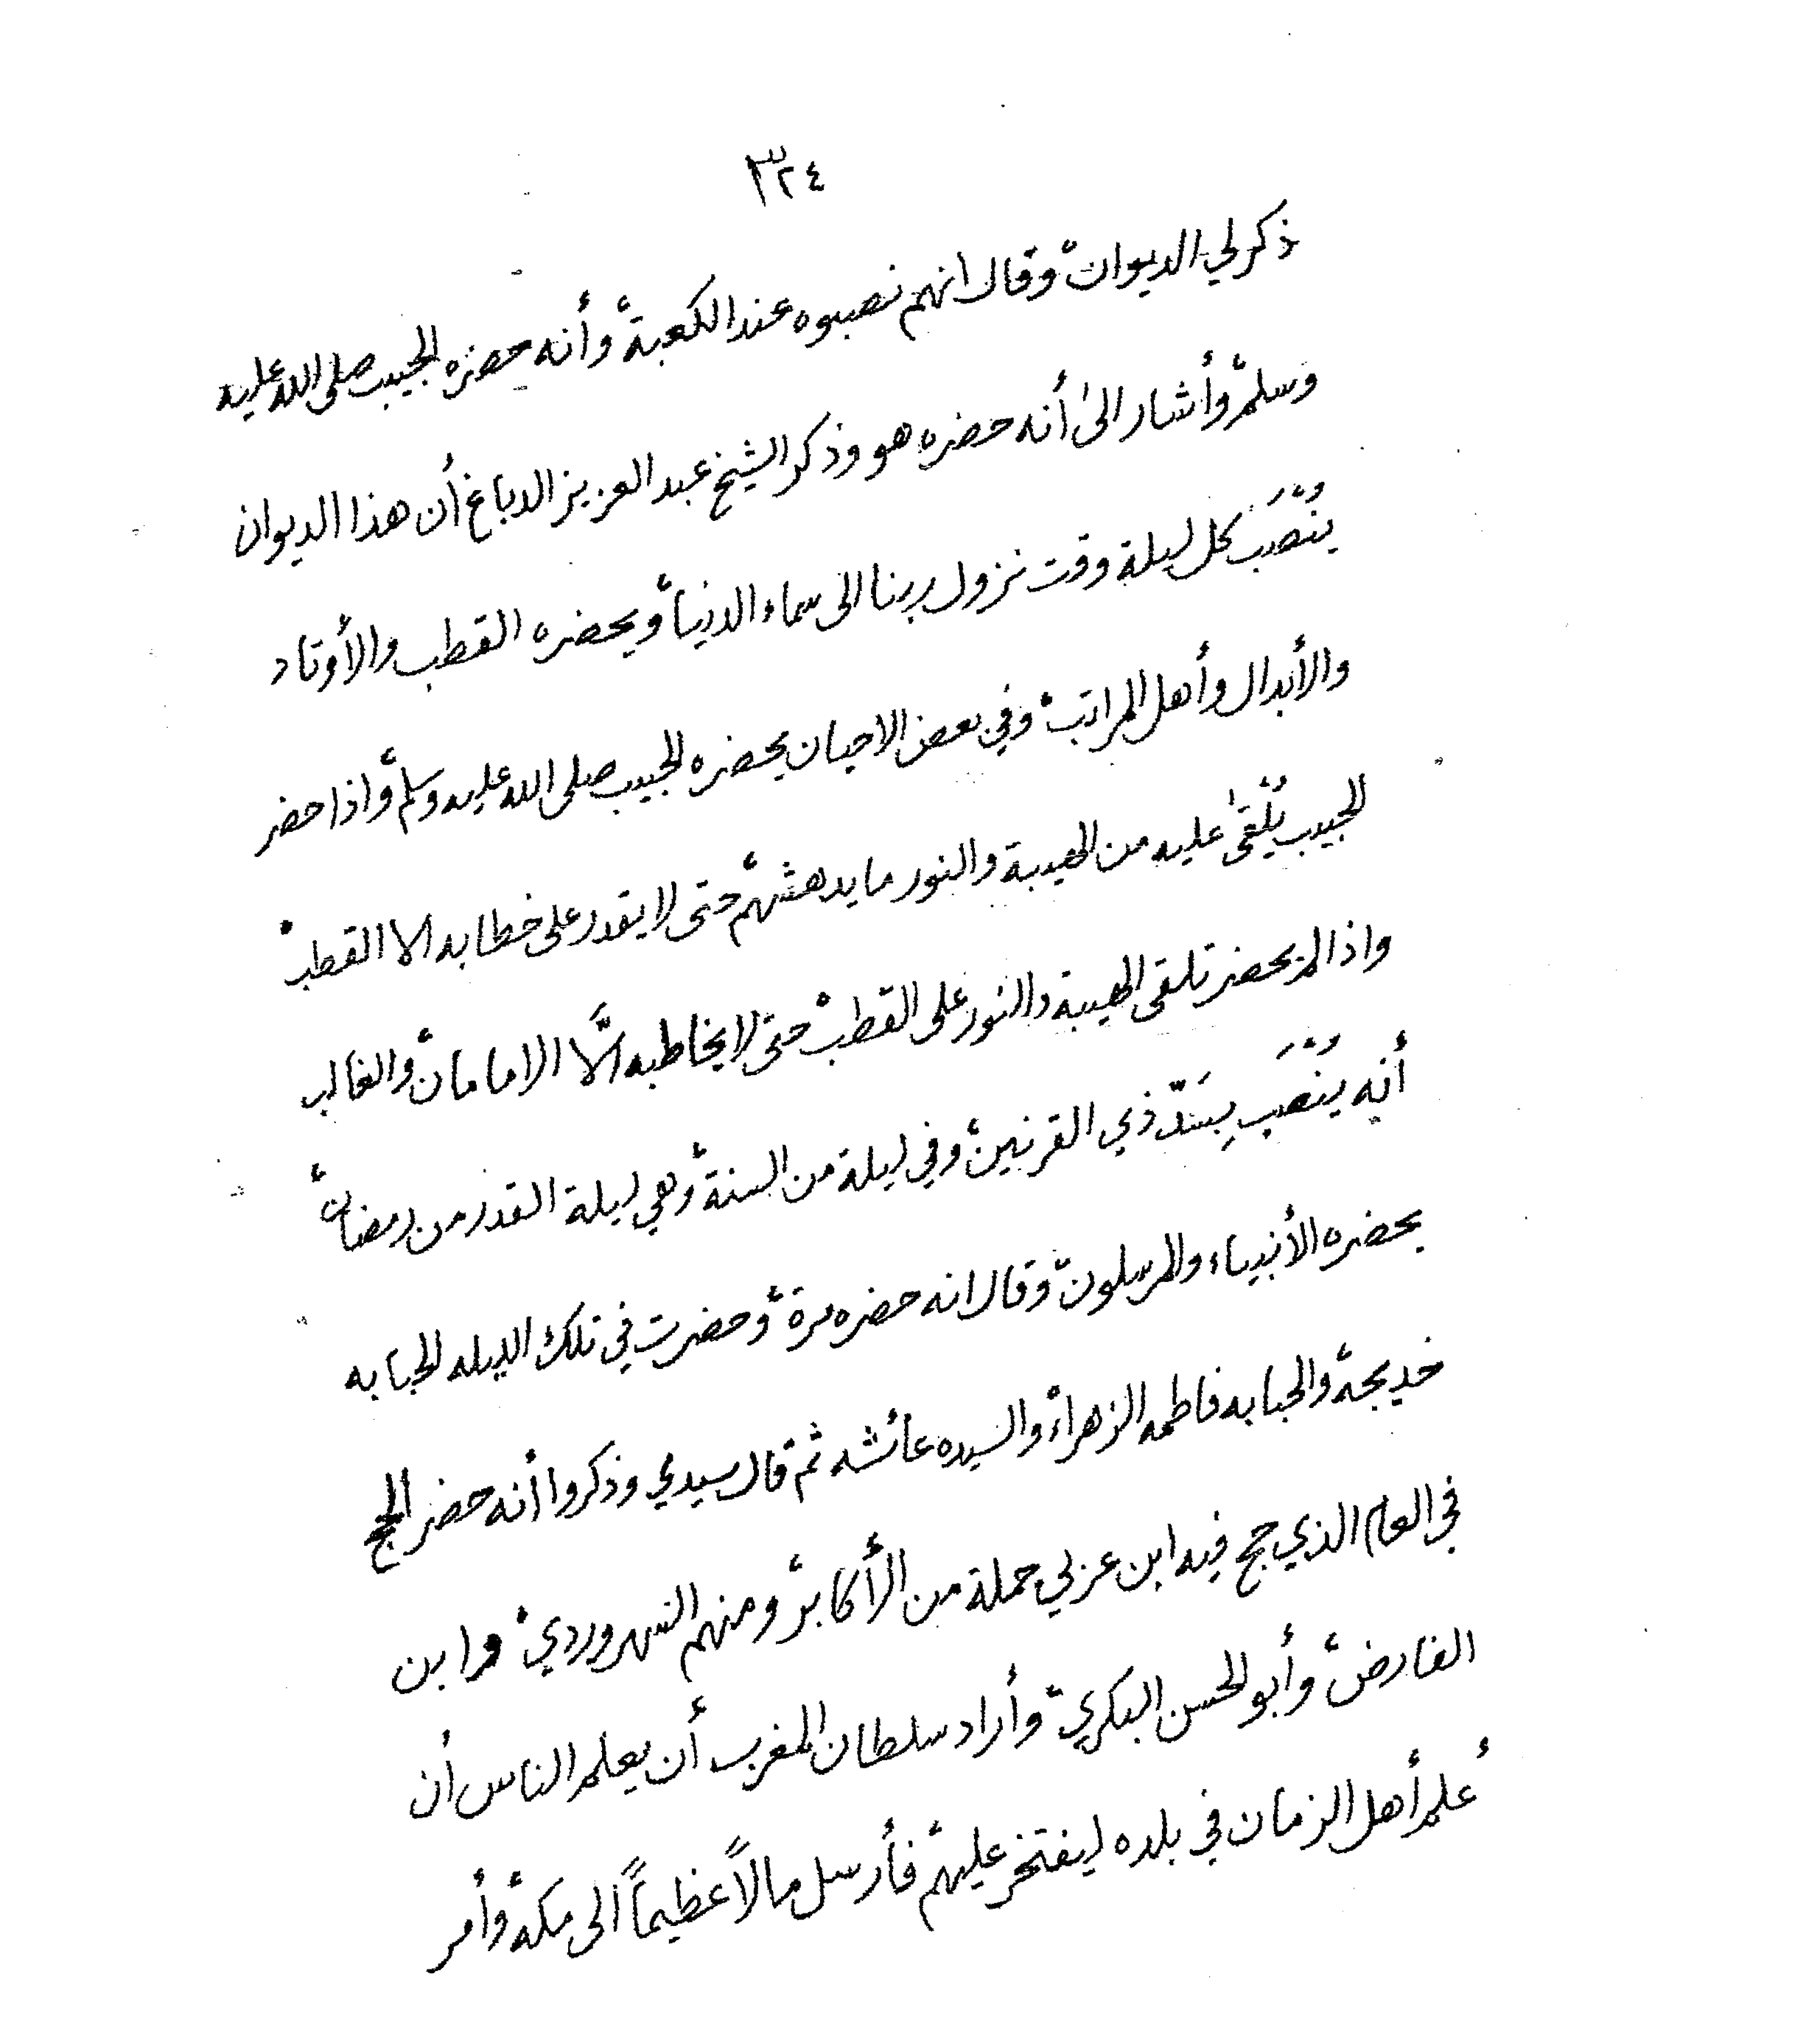 ٣٢٤
ذكر لي الديوان، وقال انهم نصبوه عند الكعبة، وأنه حضره الحبيب صلى الله عليه
وسلم، وأشار الى أنه حضره هو وذكر الشيخ عبد العزيز الدباغ أن هذا الديوان
يُنْصَب كل ليلة وقت نزول ربنا الى سماء الدنيا، ويحضره القطب والأوتاد
والأبدال وأهل المراتب، وفي بعض الاحيان يحضره الحبيب صلى الله عليه وسلم، واذا حضر
الحبيب يُلْقى عليه من الهيبة والنور ما يدهشهم، حتى لا يقدر على خطابه الا القطب،
واذا لم يحضر تلقى الهيبة والنور على القطب، حتى لا يخاطبه الَّا الامامان، والغالب
أنه يُنْصَب بِسَدّ ذي القرنين، وفي ليلة من السنة، وهي ليلة القدر من رمضان،
يحضره الأنبياء والمرسلون، وقال انه حضره مرة، وحضرت في تلك الليله الحبابه
خديجة، والحبابه فاطمه الزهراء، والسيده عائشه ثم قال سيدي وذكروا أنه حضر الحج
في العام الذي حج فيه ابن عربي جملة من الأكابر، ومنهم السهروردي، وابن
الفارض، وأبو الحسن البكري، وأراد سلطان المغرب أن يعلم الناس أن
أعلم أهل الزمان في بلده ليفتخر عليهم، فأرسل مالاً عظيماً الى مكة، وأمر